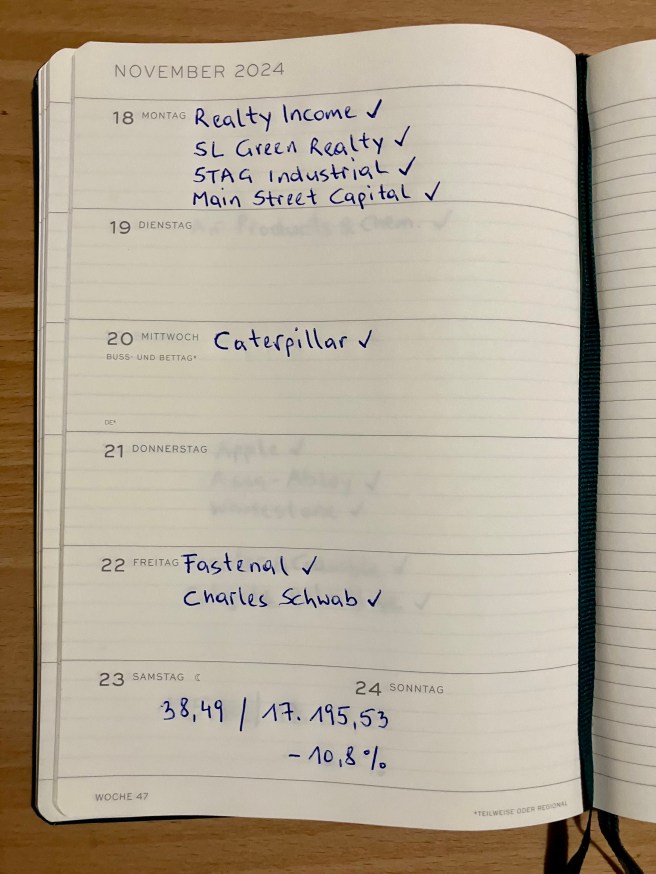 NOVEMBER 2024
18 MONTAG Realty Income ✓
SL Green Realty ✓
STAG Industrial ✓
Main Street Capital ✓
19 DIENSTAG
20 MITTWOCH Caterpillar ✓
BUSS- UND BETTAG*
21 DONNERSTAG
22 FREITAG Fastenal ✓
Charles Schwab ✓
23 SAMSTAG ☾
24 SONNTAG
38,49 / 17.195,53
- 10,8 %
WOCHE 47
*TEILWEISE ODER REGIONAL